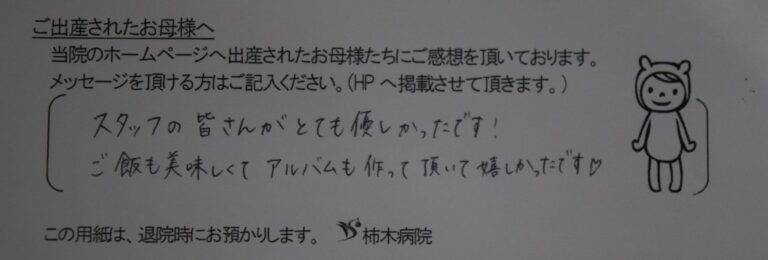 ご出産されたお母様へ
当院のホームページへ出産されたお母様たちにご感想を頂いております。
メッセージを頂ける方はご記入ください。(HP へ掲載させて頂きます。)
スタッフの皆さんがとても優しかったです!
ご飯も美味しくて アルバムも作って頂いて嬉しかったです♡
この用紙は、退院時にお預かりします。 柿木病院